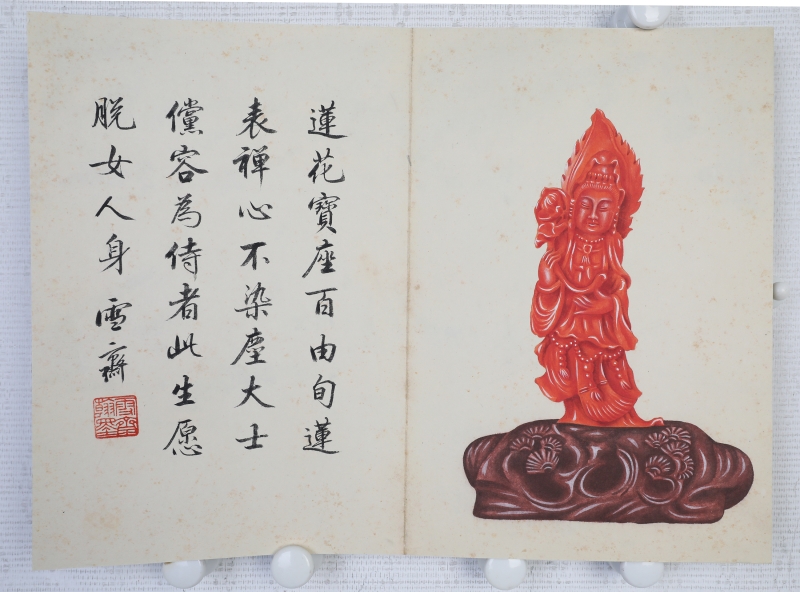 蓮花寶座百由旬蓮
表禅心不染塵大士
儻容為侍者此生愿
脱女人身 雪齋